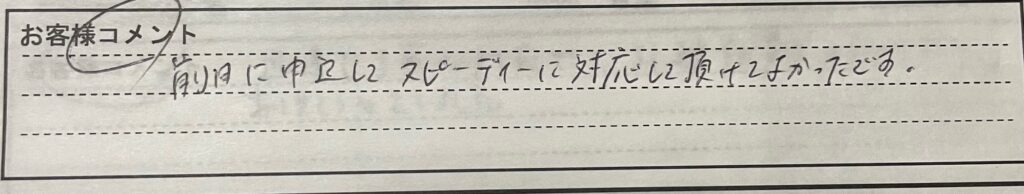 お客様コメント
前日に申込して スピーディーに対応して頂けてよかったです。